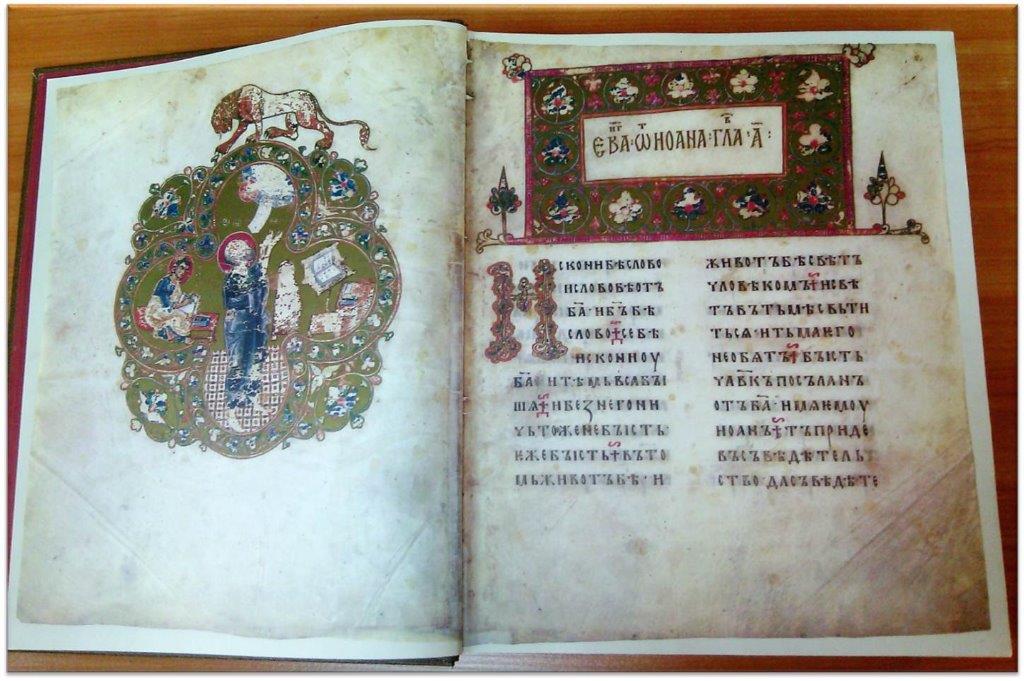 ЕВА҃·Ѡ ИОАНА·ГЛА·А҃:
ИСКОНИБѢСЛОВО
ИСЛОВОБѢОТЪ
БА҃·ИБЪ҃БѢ
СЛОВО·СЕБѢ
ИСКОНИОУ
БА҃·ИТѢМЬВСꙖБꙐ
ШѦ·ИБЕЗНЕГОНИ
ЧЬТОЖЕНЕБꙐСТЬ
ЕЖЕБꙐСТЬ·ВЪТО
МЬЖИВОТЪБѢ·И
ЖИВОТЪБѢСВѢТЪ
ЧЛОВѢКОМЪ·ИСВѢ
ТЪВЪТЬМѢСВЬТИ
ТЬСѦ·ИТЬМАѤГО
НЕОБѦТЪ·БꙐСТЬ
ЧЛ҃ВКЪПОСЪЛАНЪ
ОТЪБА҃·ИМѦѤМОУ
ИОАНЪ·ТЪПРИДЕ
ВЪСЪВѢДѢТЕЛЬ
СТВО·ДАСЪВѢДѢТЕ